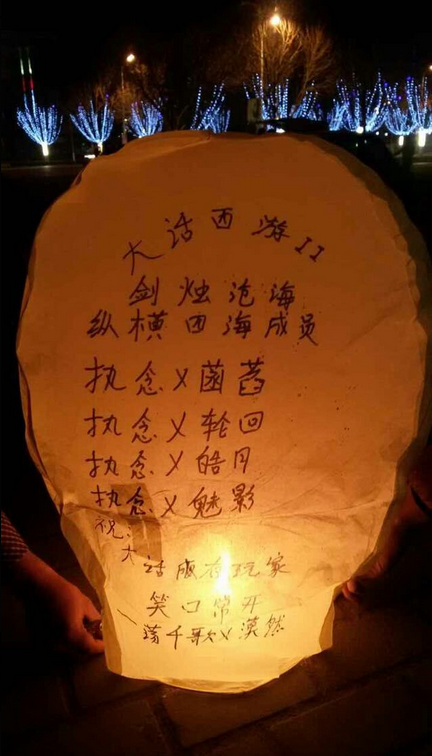 大话西游II
剑烛沧海
纵横四海成员
执念乂菡萏
执念乂轮回
执念乂皓月
执念乂魅影
祝：
大话所有玩家
笑口常开
荡千歌乂漠然